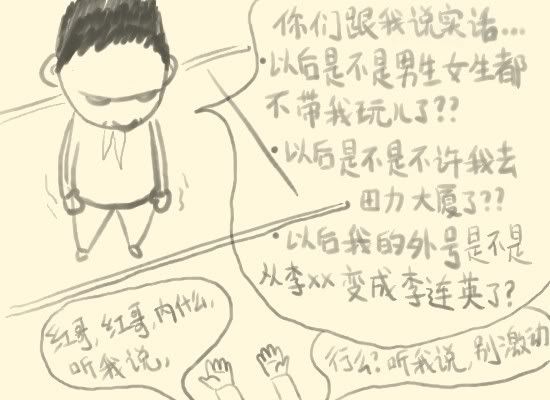 你们跟我说实话...
·以后是不是男生女生都
不带我玩儿了??
·以后是不是不许我去
田力大厦了??
·以后我的外号是不是
从李××变成李连英了?
红哥,红哥,内什么,
听我说,
行么?听我说,别激动